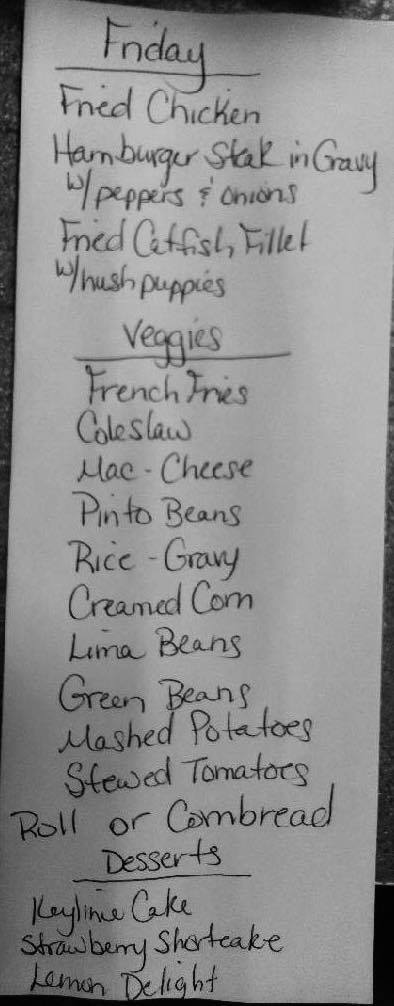 Friday
Fried Chicken
Hamburger Steak in Gravy
w/peppers & onions
Fried Catfish Fillet
w/hush puppies
Veggies
French Fries
Coleslaw
Mac - Cheese
Pinto Beans
Rice - Gravy
Creamed Corn
Lima Beans
Green Beans
Mashed Potatoes
Stewed Tomatoes
Roll or Cornbread
Desserts
Keylime Cake
Strawberry Shortcake
Lemon Delight